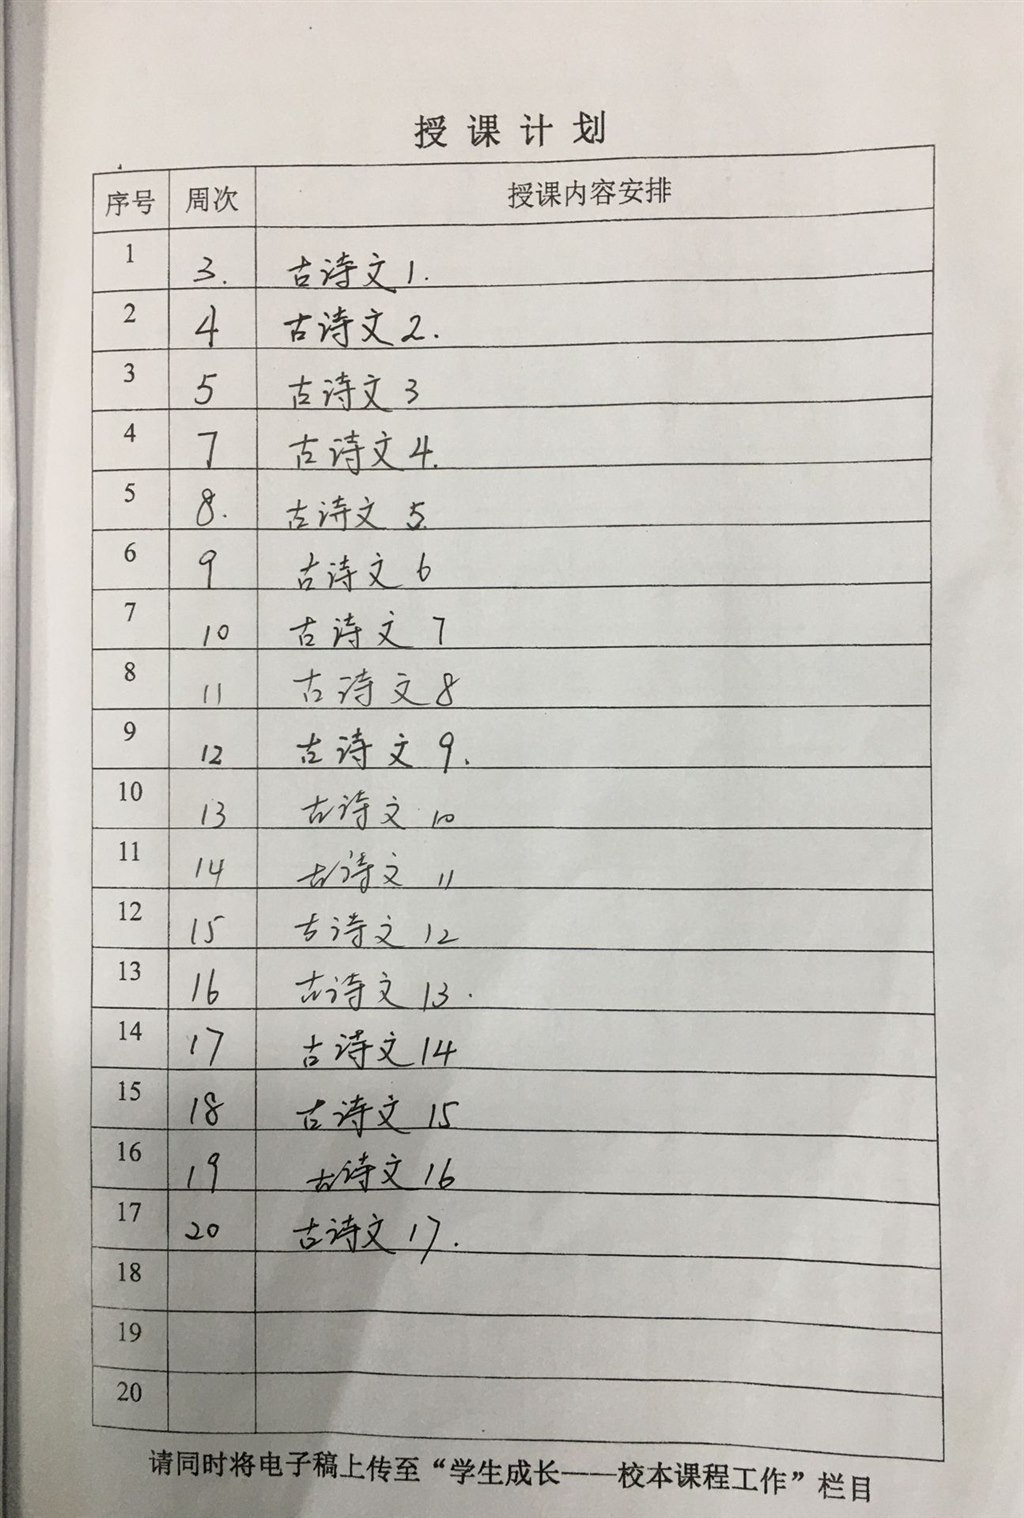 授课计划
序号 周次 授课内容安排
1 3. 古诗文1.
2 4 古诗文2.
3 5 古诗文3
4 7 古诗文4.
5 8. 古诗文5.
6 9 古诗文6
7 10 古诗文7
8 11 古诗文8
9 12 古诗文9.
10 13 古诗文10
11 14 古诗文11
12 15 古诗文12
13 16 古诗文13.
14 17 古诗文14
15 18 古诗文15
16 19 古诗文16
17 20 古诗文17.
18
19
20
请同时将电子稿上传至“学生成长——校本课程工作”栏目